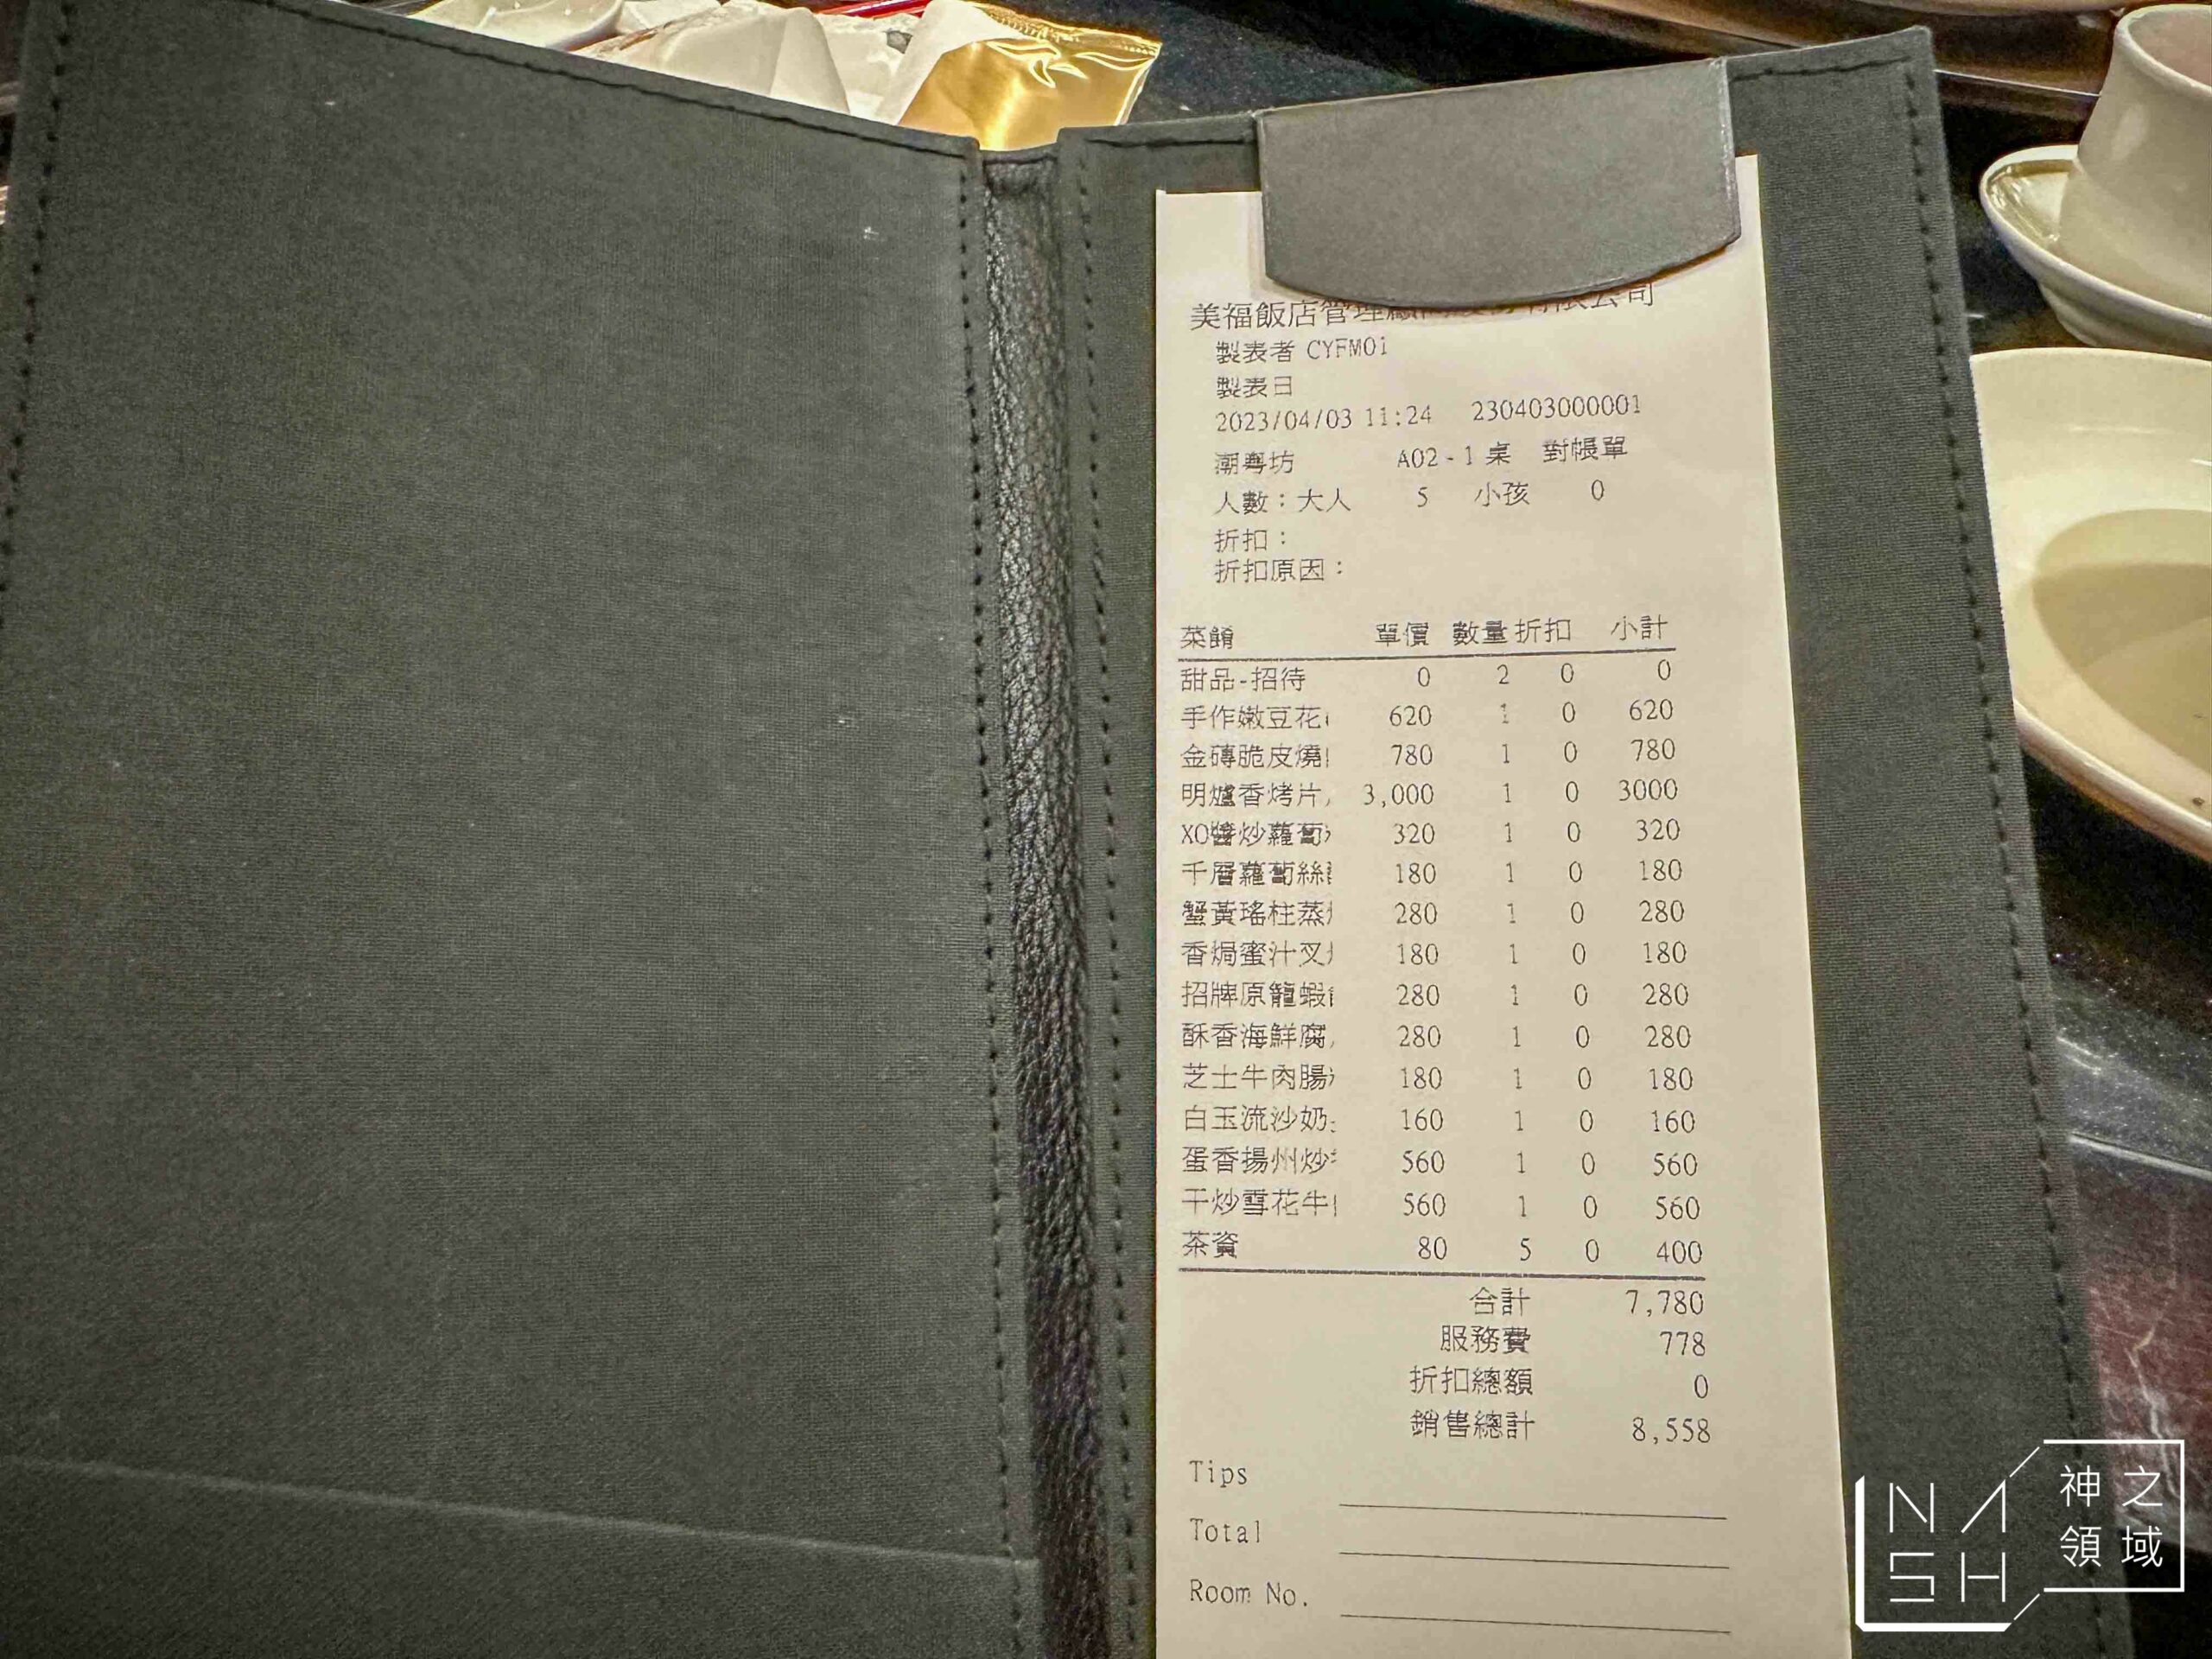 美福飯店管理顧 有限公司
製表者 CYFM01
製表日
2023/04/03 11:24 230403000001
潮粵坊 A02-1 桌 對帳單
人數:大人 5 小孩 0
折扣:
折扣原因:
菜餚 單價 數量 折扣 小計
甜品-招待 0 2 0 0
手作嫩豆花 620 1 0 620
金磚脆皮燒 780 1 0 780
明爐香烤片 3,000 1 0 3000
XO醬炒蘿蔔 320 1 0 320
千層蘿蔔絲 180 1 0 180
蟹黃瑤柱蒸 280 1 0 280
香焗蜜汁叉 180 1 0 180
招牌原籠蝦 280 1 0 280
酥香海鮮腐 280 1 0 280
芝士牛肉腸 180 1 0 180
白玉流沙奶 160 1 0 160
蛋香揚州炒 560 1 0 560
干炒雪花牛 560 1 0 560
茶資 80 5 0 400
合計 7,780
服務費 778
折扣總額 0
銷售總計 8,558
Tips
Total
Room No.
NASH 神之領域